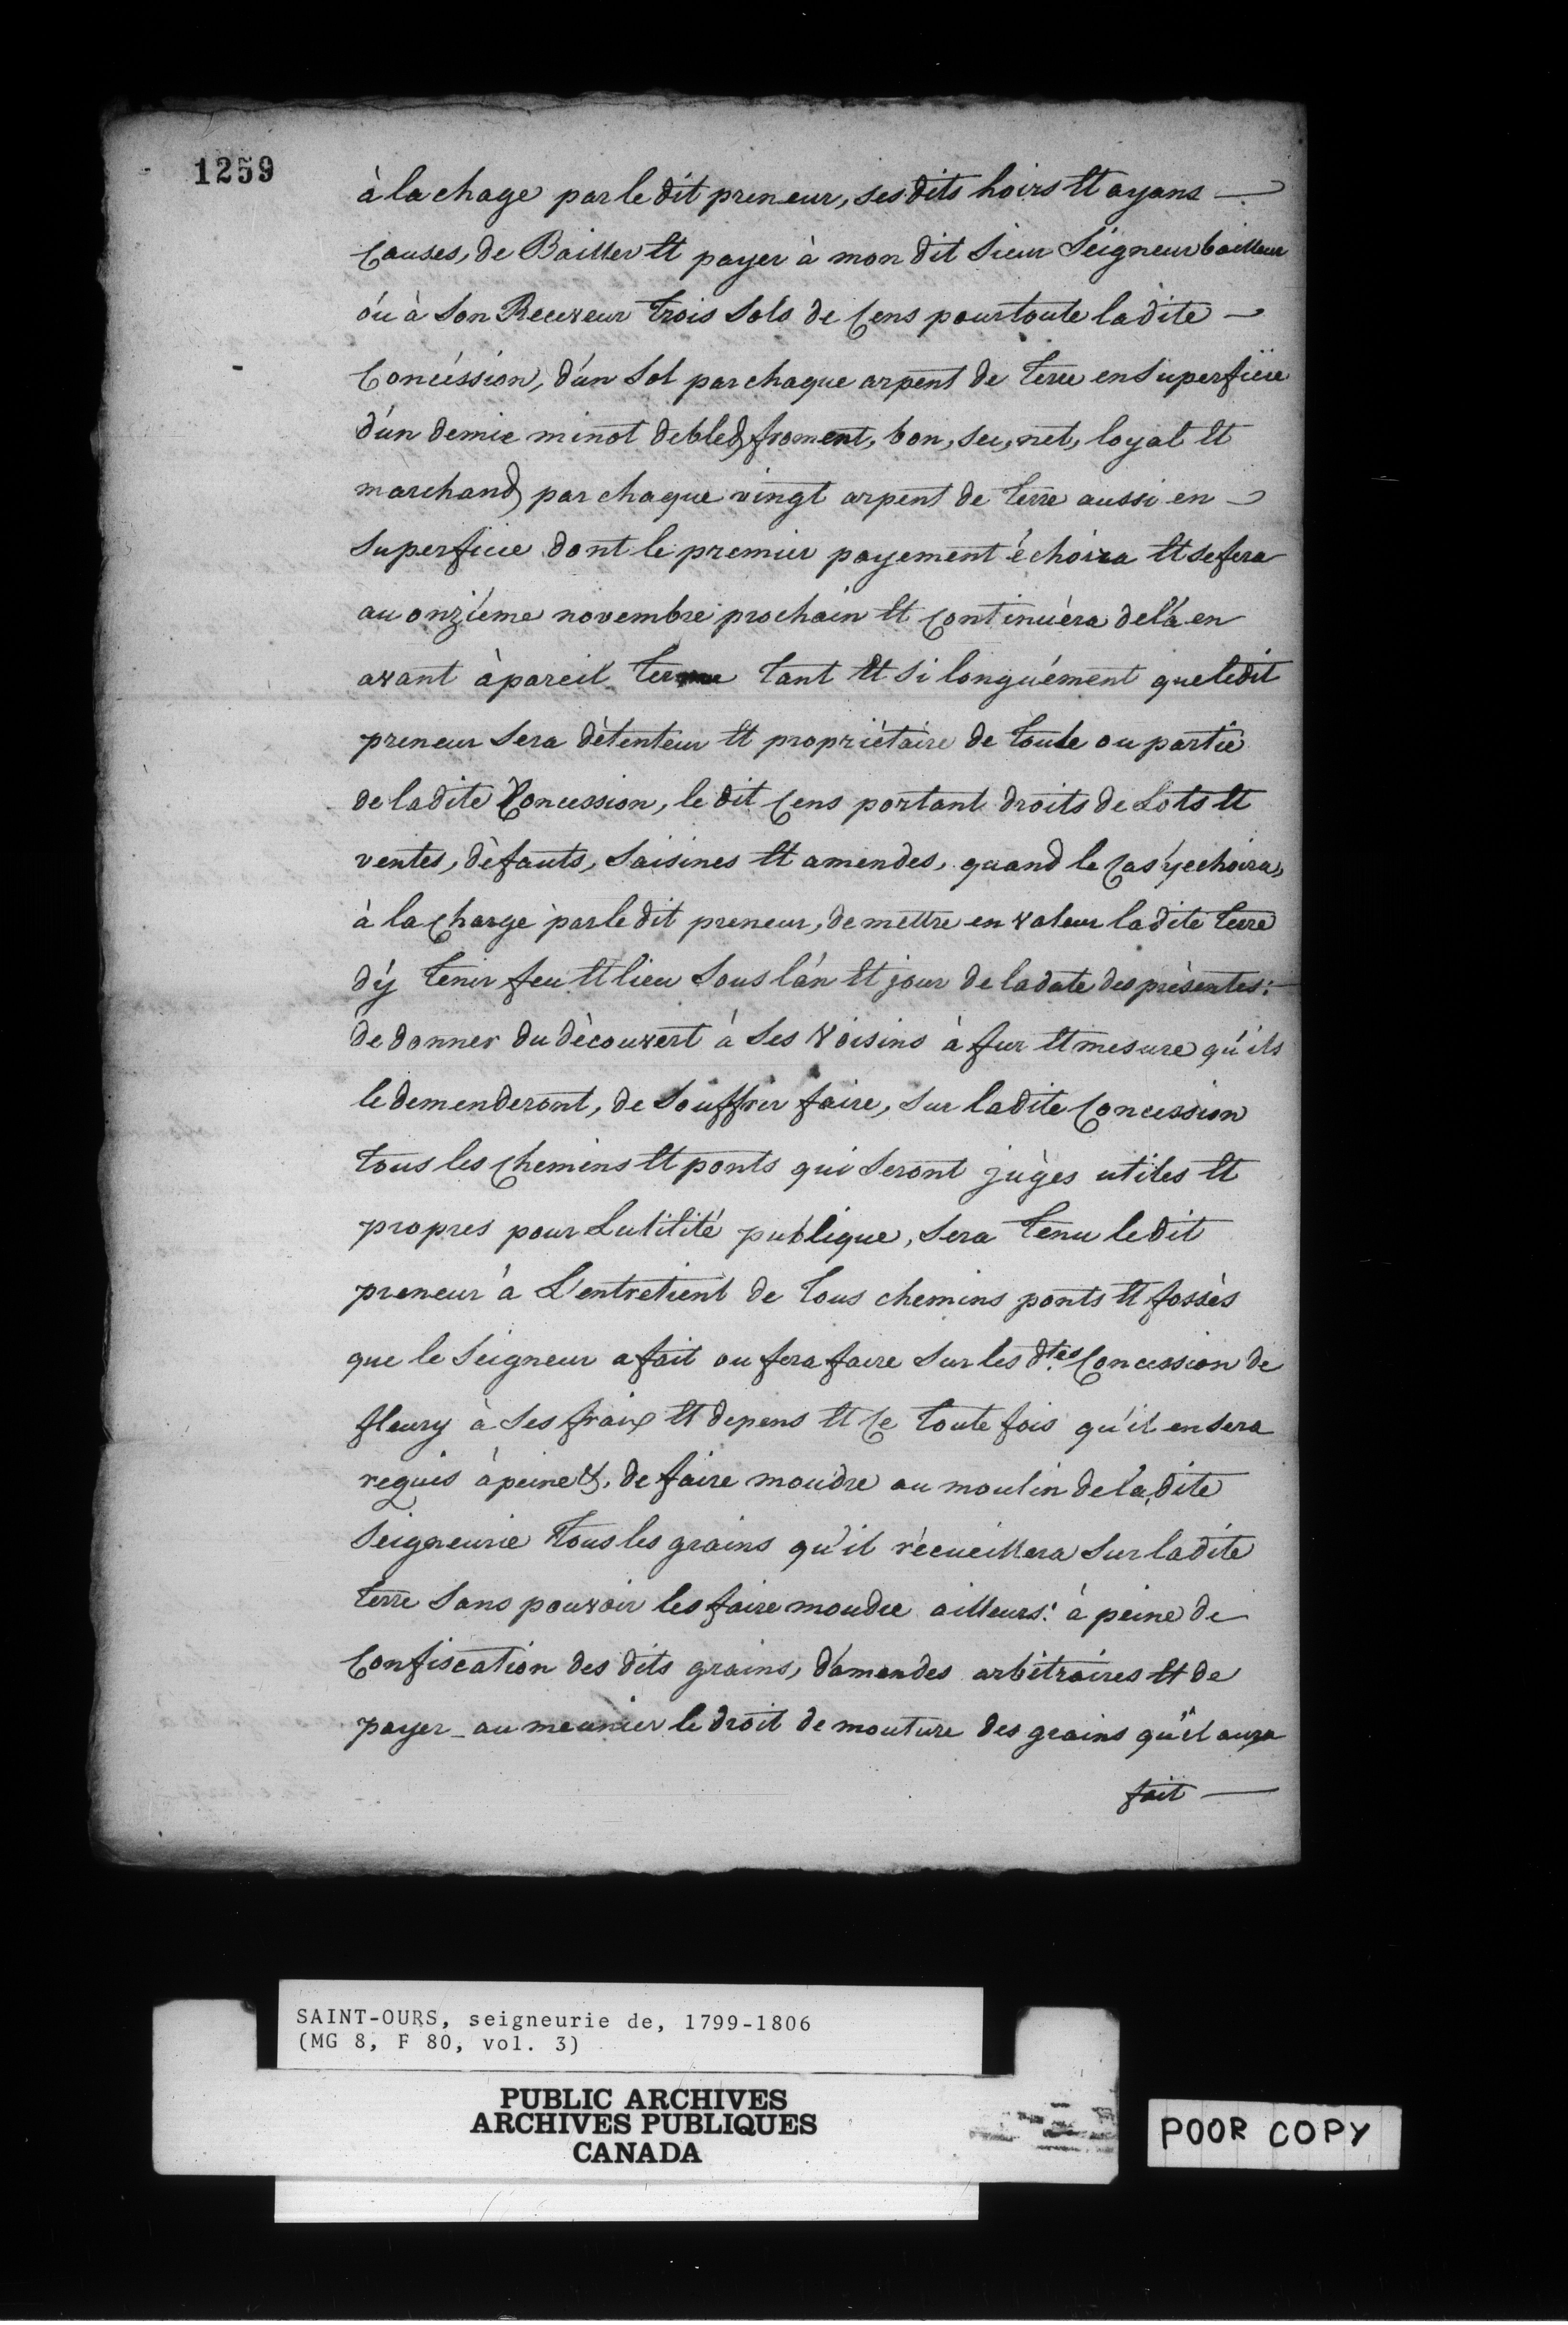 1259
à la chage par le dit preneur, ses dits hoirs et ayans —
Causes, de Bailler et payer à mon dit Sieur Seigneur bailleur
óu à Son Receveur trois Sols de Cens pour toute la dite —
Concéssion, d'un Sol par chaque arpent de terre en Superficie
d'un demie minot de bled froment, bon, sec, net, loyal et
marchand par chaque vingt arpent de terre aussi en —
Superficie dont le premier payement échoira et se fera
au onziéme novembre prochain et Continuéra delà en
avant à pareil terme tant et si longuément que le dit
preneur Sera dètenteur et propriètaire de toute ou partie
de la dite Concession, le dit Cens portant droits de Lots et
ventes, dèfauts, Saisines et amendes, quand le Cas y echoira,
à la Charge par le dit preneur, de mettre en valeur la dite terre
d'y tenir feu et lieu Sous l'an et jour de la date des prèsentes:
de donner du dècouvert à Ses Voisins à fur et mesure qu'ils
le demenderont, de Souffrir faire, Sur la dite Concession
tous les Chemins et ponts qui Seront jugès utiles et
propres pour Lutilité publique, Sera tenu le dit
preneur à L'entretient de tous chemins ponts et fossès
que le Seigneur a fait ou fera faire Sur les dtes Concession de
fleury à Ses fraix et depens et Ce toute fois qu'il en Sera
requis à peine &, de faire moudre au moulin de la dite
Seigneurie tous les grains qu'il récueillera Sur la dite
terre Sans pouvoir les faire moudre ailleurs: à peine de
Confiscation des dits grains, d'amendes arbitraires et de
payer - au meunier le droit de mouture des grains qu'il aura
fait —
SAINT-OURS, seigneurie de, 1799-1806
(MG 8, F 80, vol. 3)
PUBLIC ARCHIVES
ARCHIVES PUBLIQUES
CANADA
POOR COPY